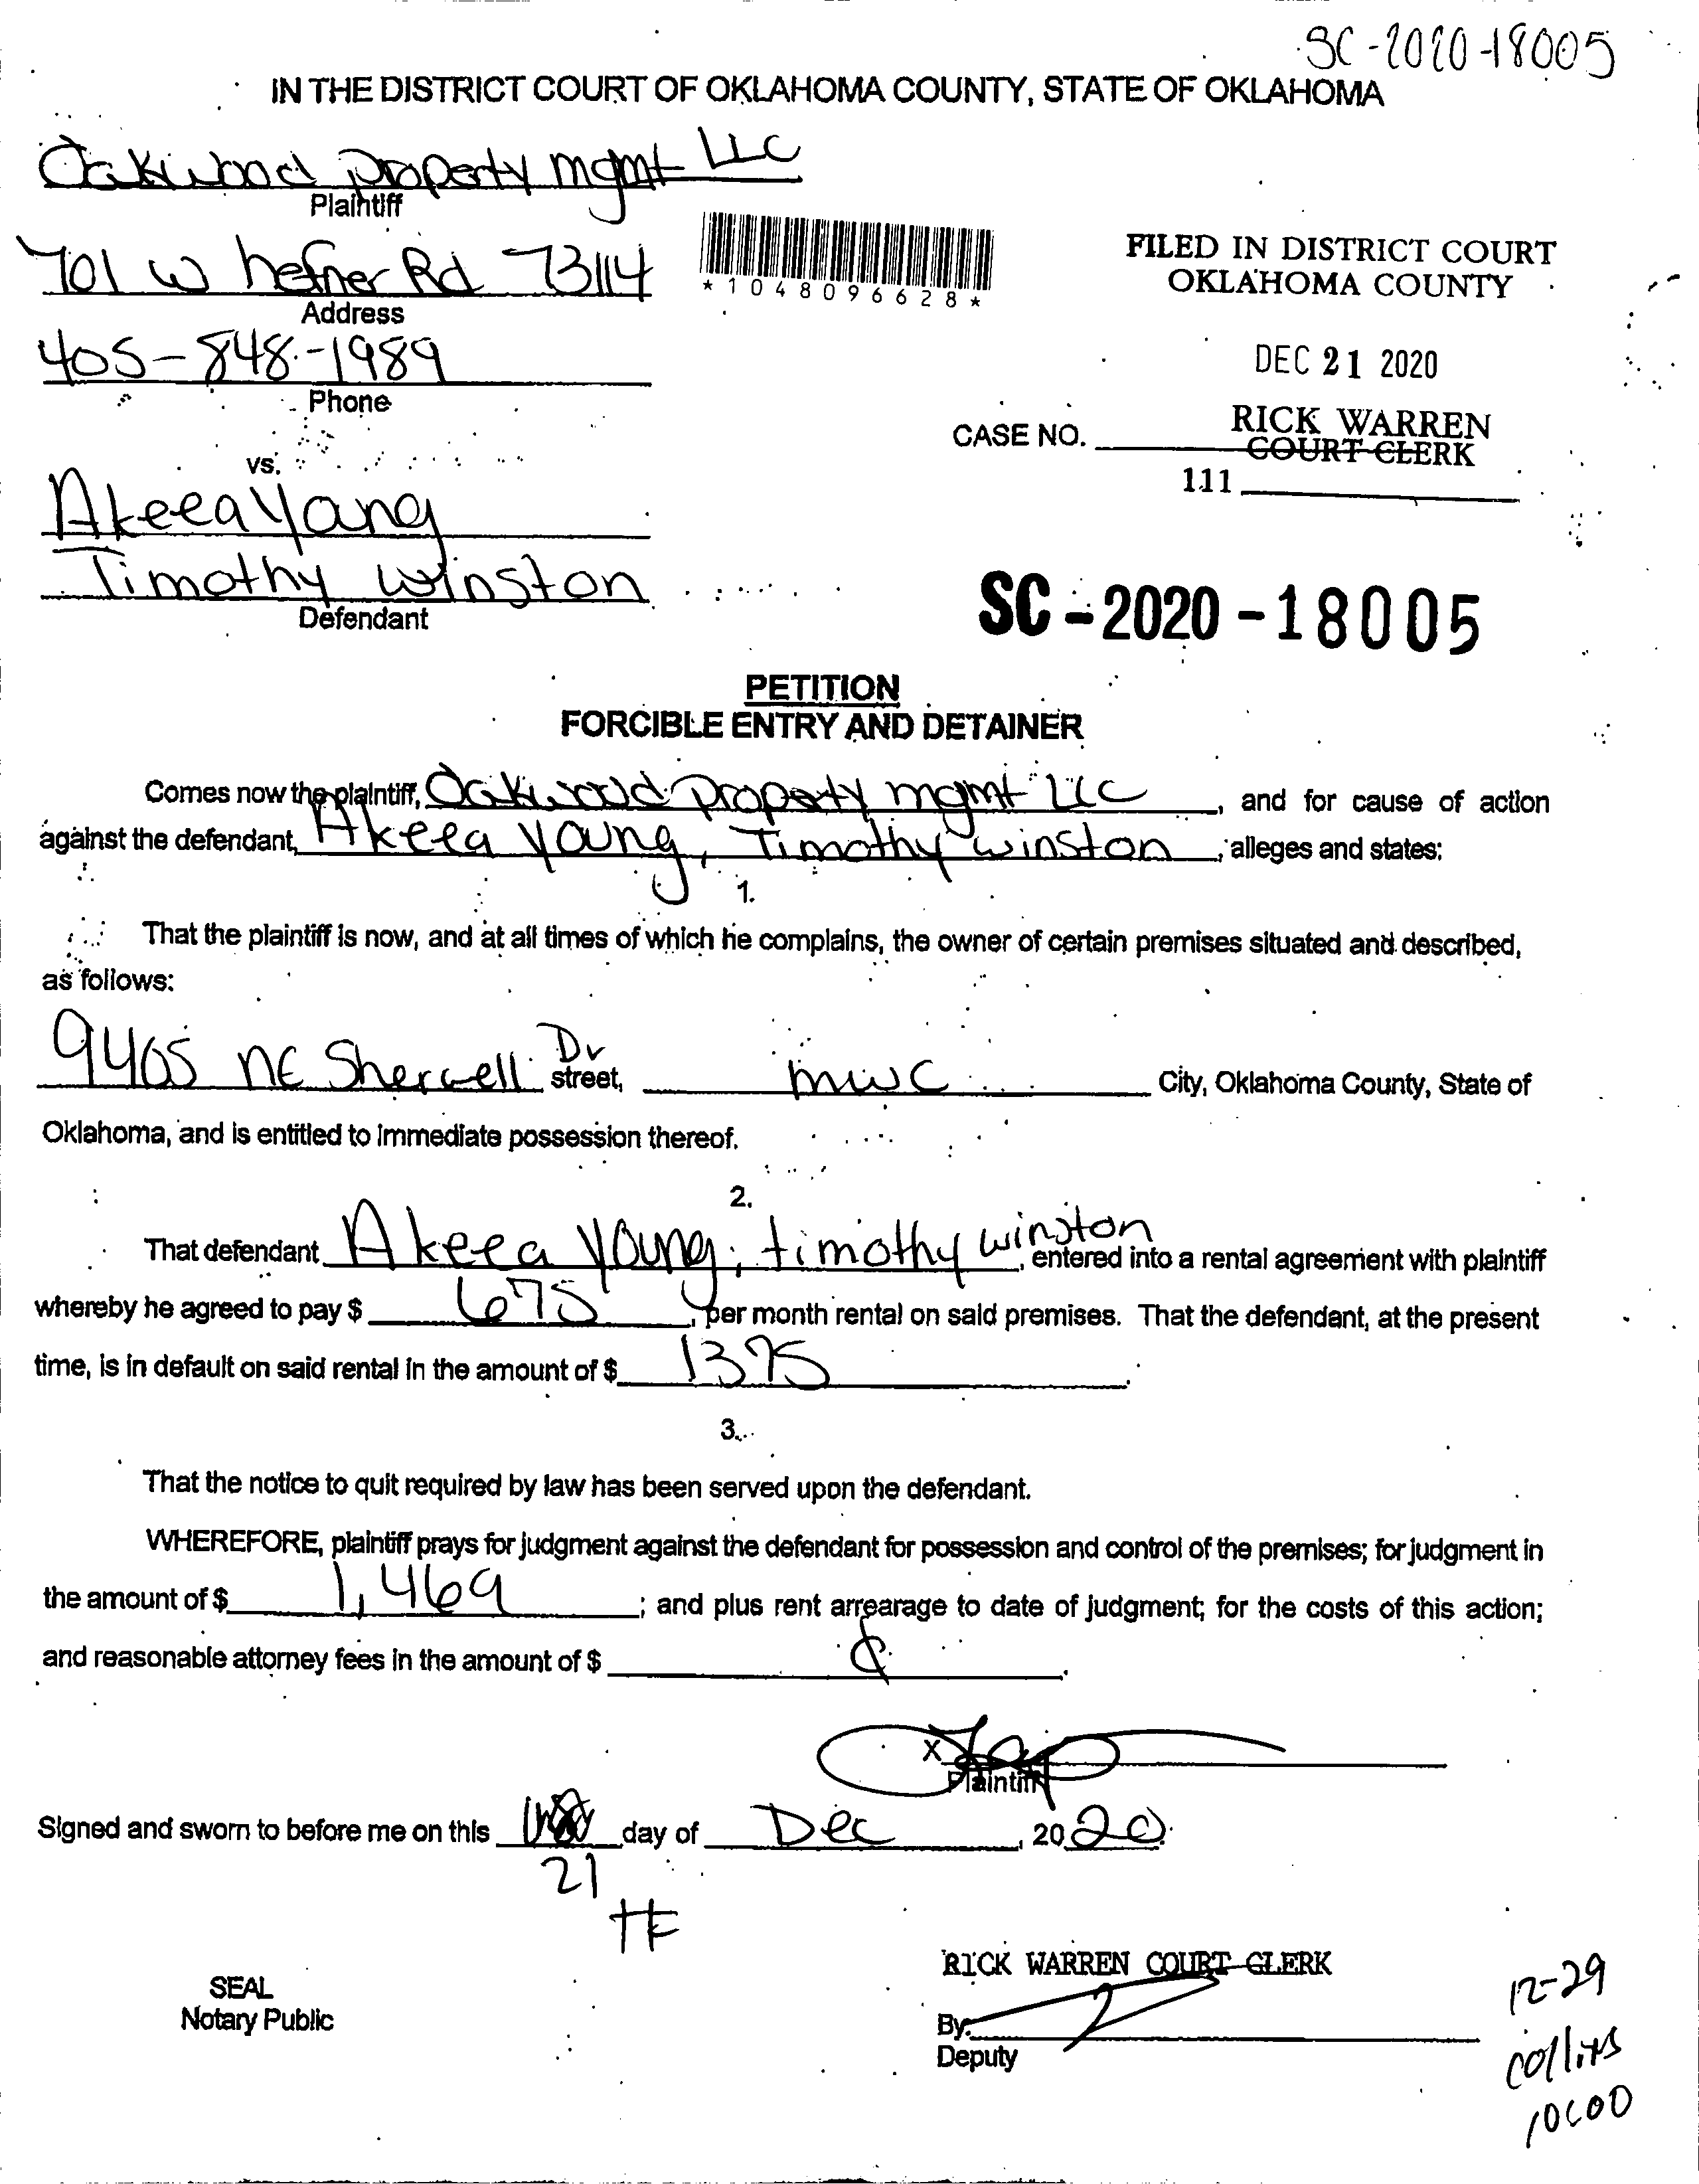 SC-2020-18005
IN THE DISTRICT COURT OF OKLAHOMA COUNTY, STATE OF OKLAHOMA
Oakwood property mgmt LLC
Plaintiff
701 W hefner Rd 73114
Address
*1048096628*
FILED IN DISTRICT COURT
OKLAHOMA COUNTY
405-848-1989
Phone
DEC 21 2020
RICK WARREN
COURT CLERK
CASE NO.
111
vs.
Akeea Young
Timothy Winston
Defendant
SC-2020-18005
PETITION
FORCIBLE ENTRY AND DETAINER
Comes now the plaintiff, Oakwood Property mgmt LLC, and for cause of action
against the defendant, Akeea Young, Timothy Winston, alleges and states:
1.
That the plaintiff is now, and at all times of which he complains, the owner of certain premises situated and described,
as follows:
9405 NE Sherwell Dr street, mwc City, Oklahoma County, State of
Oklahoma, and is entitled to immediate possession thereof.
2.
That defendant Akeea Young, timothy winston, entered into a rental agreement with plaintiff
whereby he agreed to pay $ 675, per month rental on said premises. That the defendant, at the present
time, is in default on said rental in the amount of $ 1395.
3.
That the notice to quit required by law has been served upon the defendant.
WHEREFORE, plaintiff prays for judgment against the defendant for possession and control of the premises; for judgment in
the amount of $ 1,469; and plus rent arrearage to date of judgment; for the costs of this action;
and reasonable attorney fees in the amount of $
X
Plaintiff
Signed and sworn to before me on this day of Dec, 2020.
21
SEAL
Notary Public
RICK WARREN COURT CLERK
By
Deputy
12-29
collins